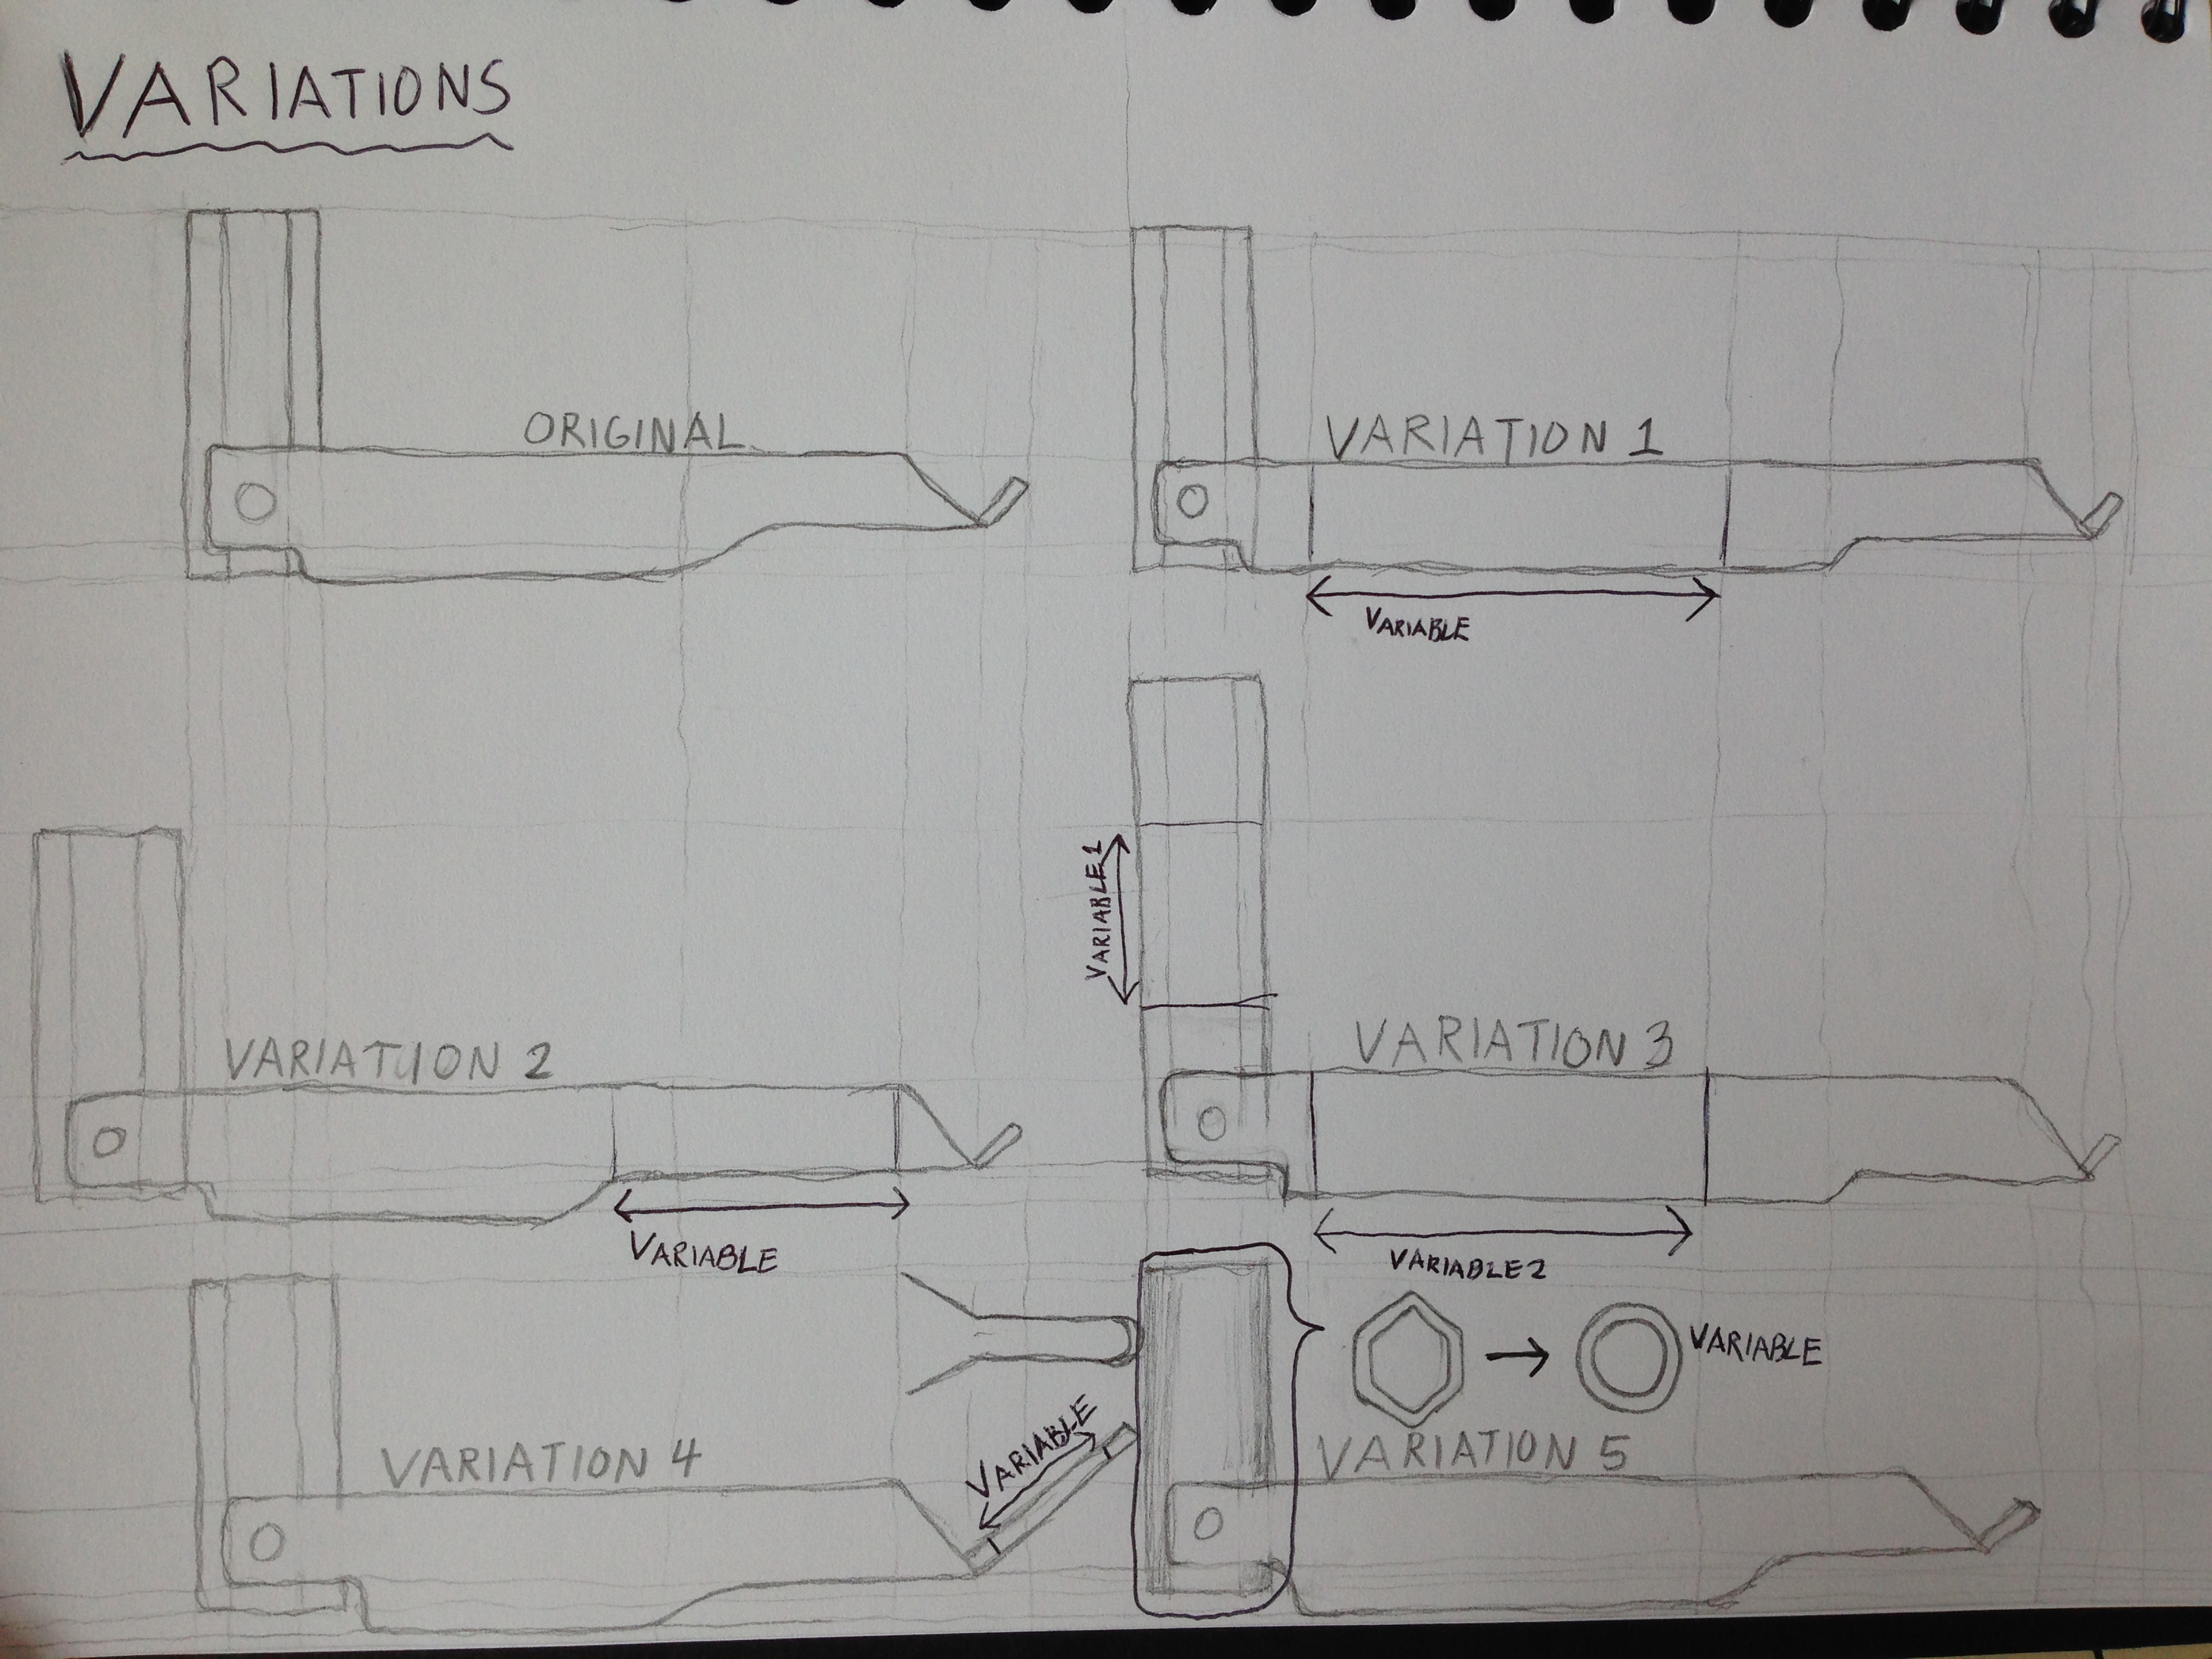 VARIATIONS
ORIGINAL
VARIATION 1
VARIABLE
VARIATION 2
VARIABLE
VARIABLE 1
VARIATION 3
VARIABLE 2
VARIATION 4
VARIABLE
VARIABLE
VARIATION 5